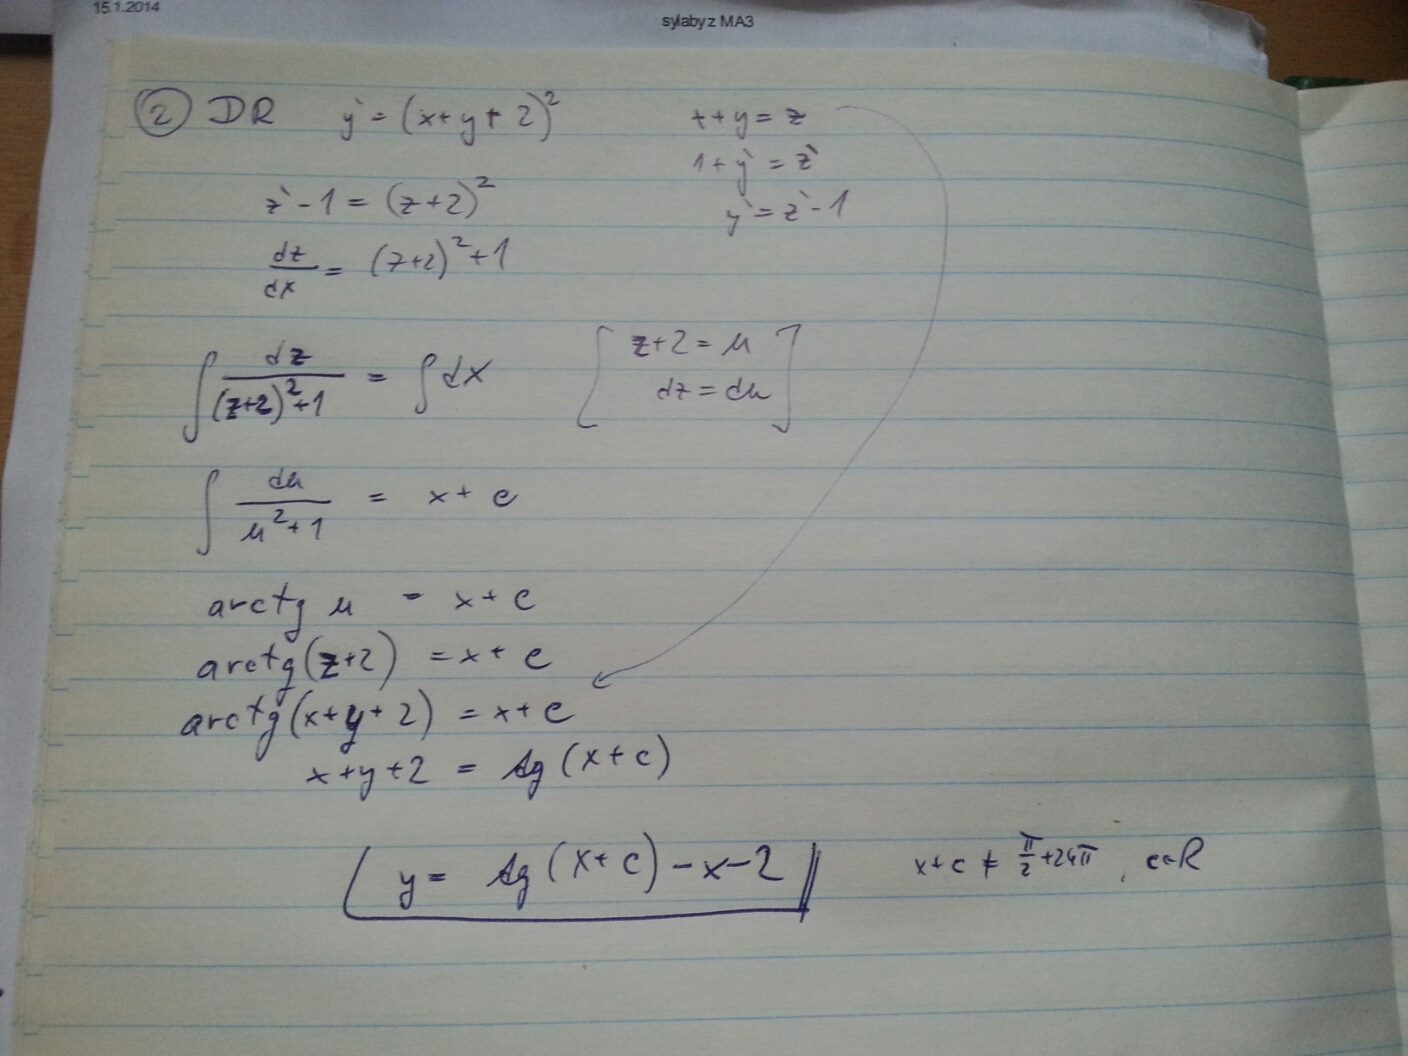 15.1.2014
sylaby z MA3
② DR y' = (x+y+2)² x+y = z
1+y' = z'
z' - 1 = (z+2)² y' = z' - 1
dz/dx = (z+2)² + 1
∫ dz/((z+2)²+1) = ∫ dx [ z+2 = u
dz = du ]
∫ du/(u²+1) = x + c
arctg u = x + c
arctg(z+2) = x + c
arctg(x+y+2) = x + c
x+y+2 = tg(x+c)
y = tg(x+c) - x - 2 x+c ≠ π/2 + 2kπ, c∈R